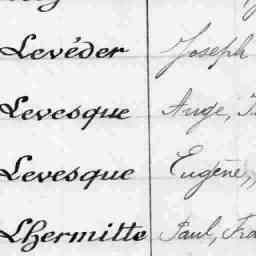 Levéder Joseph
Levesque Ange,
Levesque Eugène,
Lhermitte Paul,